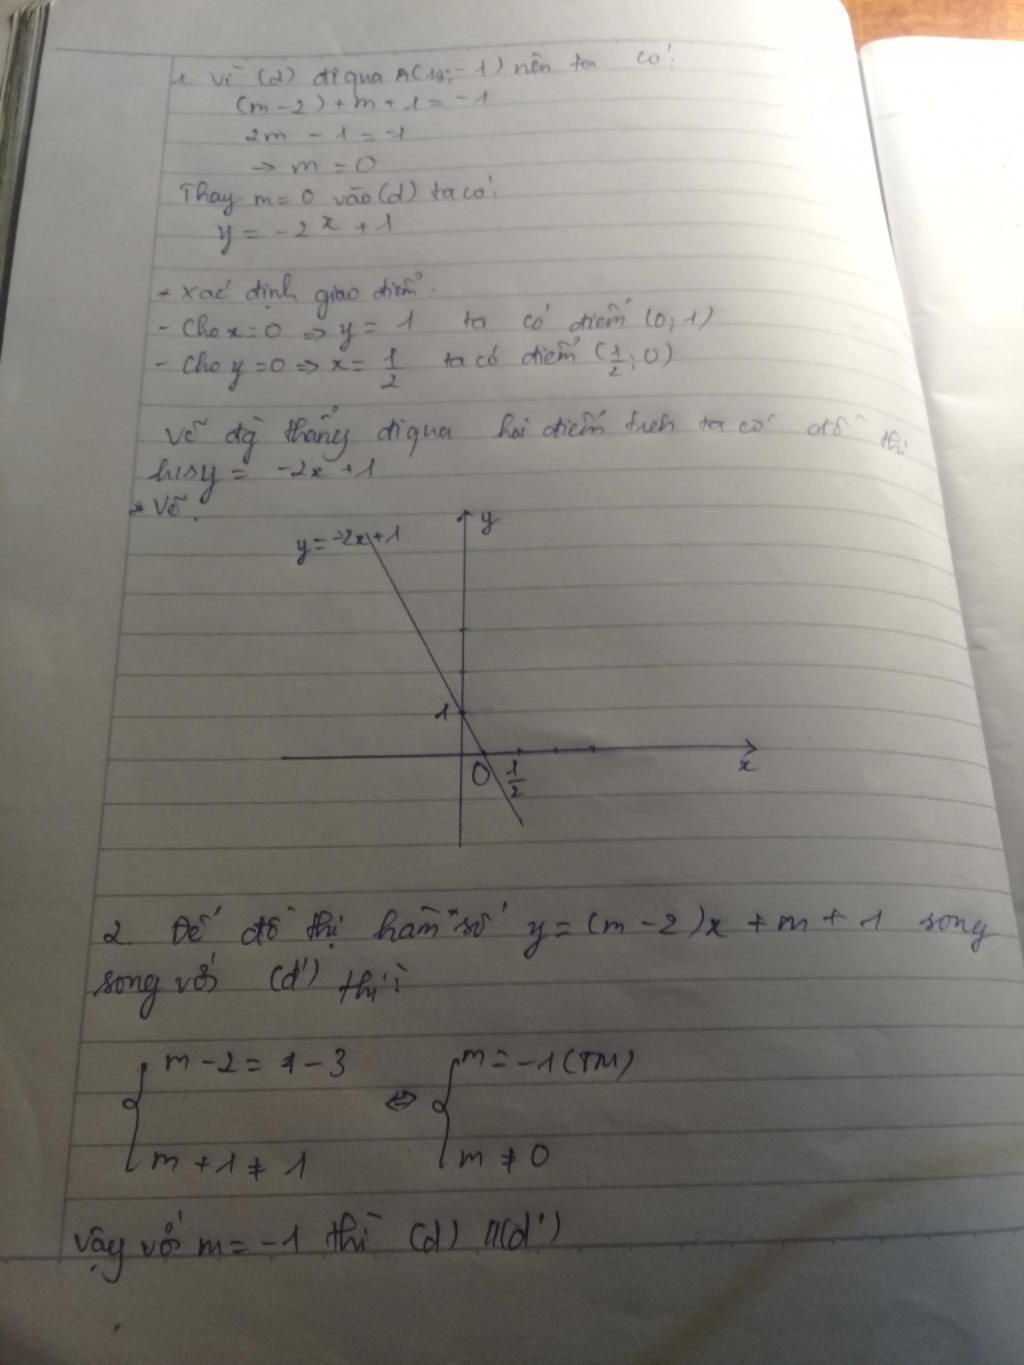 1. Vì (d) đi qua A(1; -1) nên ta có:
(m-2) + m + 1 = -1
2m - 1 = -1
→ m = 0
Thay m = 0 vào (d) ta có:
y = -2x + 1
+ Xác định giao điểm.
- Cho x = 0 ⇒ y = 1 ta có điểm (0; 1)
- Cho y = 0 ⇒ x = 1/2 ta có điểm (1/2; 0)
Vẽ đg thẳng đi qua hai điểm trên ta có đồ thị
h/s y = -2x + 1
* Vẽ.
y = -2x + 1
y
1
O
1/2
x
2. Để đồ thị hàm số y = (m-2)x + m + 1 song
song với (d') thì:
m - 2 = -3 ⇔ m = -1 (TM)
m + 1 ≠ 1
m ≠ 0
Vậy với m = -1 thì (d) // (d')